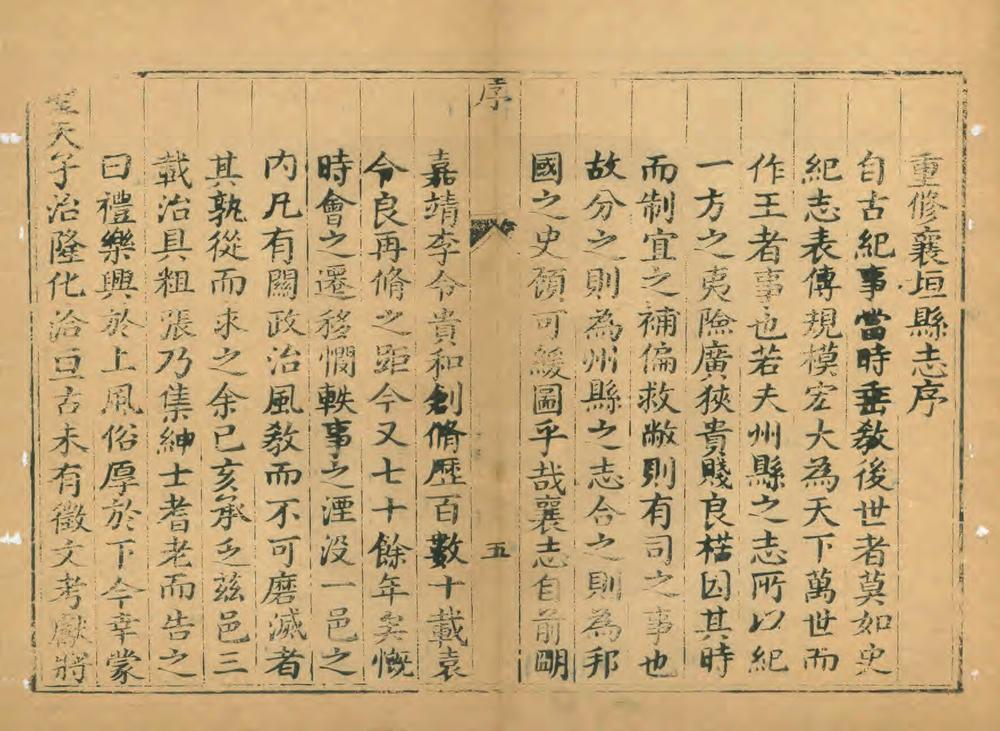 重修襄垣縣志序
自古紀事當時垂教後世者莫如史
紀志表傳規模宏大為天下萬世而
作王者事也若夫州縣之志所以紀
一方之夷險廣狹貴賤良楛因其時
而制宜之補偏救敝則有司之事也
故分之則為州縣之志合之則為邦
國之史顧可緩圖乎哉襄志自前明
序
五
嘉靖李令貴和創脩歷百數十載袁
令良再脩之距今又七十餘年矣慨
時會之遷移憫軼事之湮没一邑之
内凡有關政治風教而不可磨滅者
其孰從而求之余己亥承乏茲邑三
載治具粗張乃集紳士耆老而告之
曰禮樂興於上風俗厚於下今幸蒙
聖天子治隆化洽亘古未有徵文考獻將